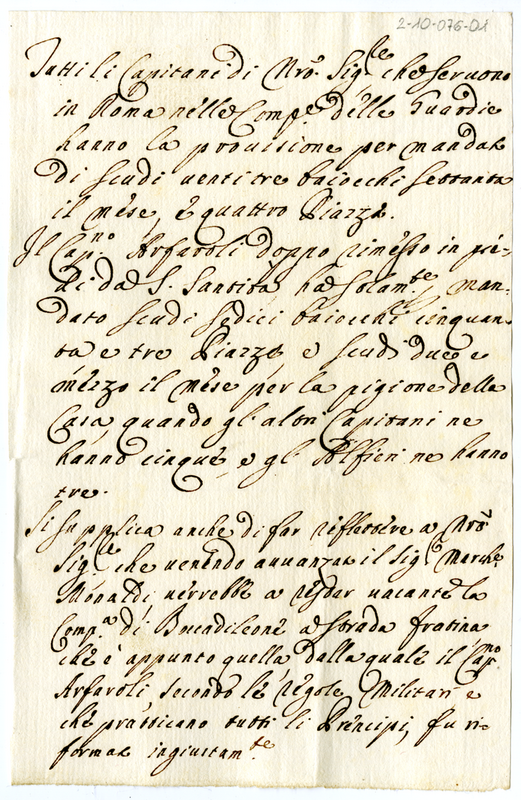 2-10-076-01
Tutti li Capitani di Nro. Sig.re che seruono
in Roma nelle Comp.e delle Guardie
hanno la prouisione per mandato
di scudi uenti tre baiocchi settanta
il mese, e quattro Piazze.
Il Cap.no Arfaroli doppo rimesso in pie-
di da S. Santità ha solam.te man-
dato scudi sedici baiocchi cinquan
ta e tre Piazze e scudi due e
mezzo il mese per la pigione della
Casa, quando gl'altri Capitani ne
hanno cinque, e gl'Alfieri ne hanno
tre.
Si supplica anche di far riflettere a Nro
Sig.re che uenendo auuanzato il Sig. March.
Monaldi, uerrebbe a restar uacante la
Comp.a di Bocadileone a strada fratina
che è appunto quella dalla quale il Cap.no
Arfaroli, secondo le regole Militari e
che pratticano tutti li Principi, fu ri-
formato ingiustam.te